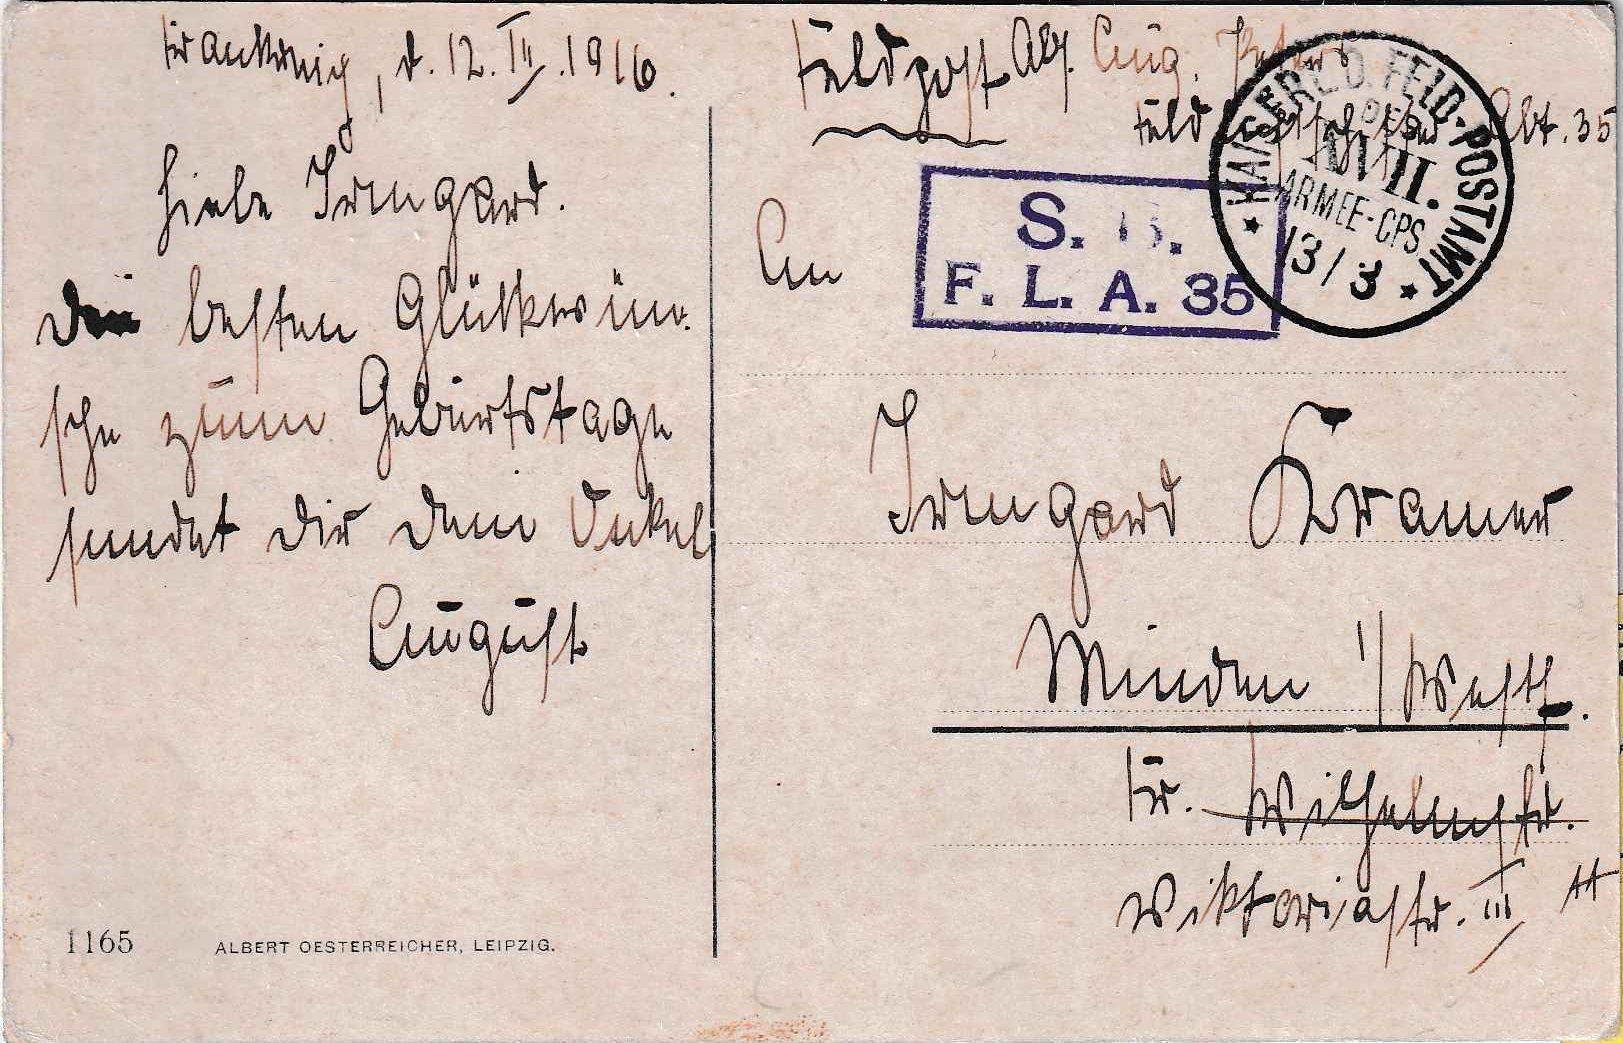 Frankreich, d. 12. III. 1916.
Liebe Irmgard.
Die besten Glückwün-
sche zum Geburtstage
sendet dir dein Onkel
August
1165
ALBERT OESTERREICHER, LEIPZIG.
Feldpost Abs. Aug.
Feld Abt. 35
KAISERL. D. FELD-POSTAMT
DES
XVIII.
ARMEE-CPS
13/3
S. B.
F. L. A. 35
An
Irmgard Kramer
Minden i/Westf.
Fr. Wilhelmstr.
Viktoriastr. III